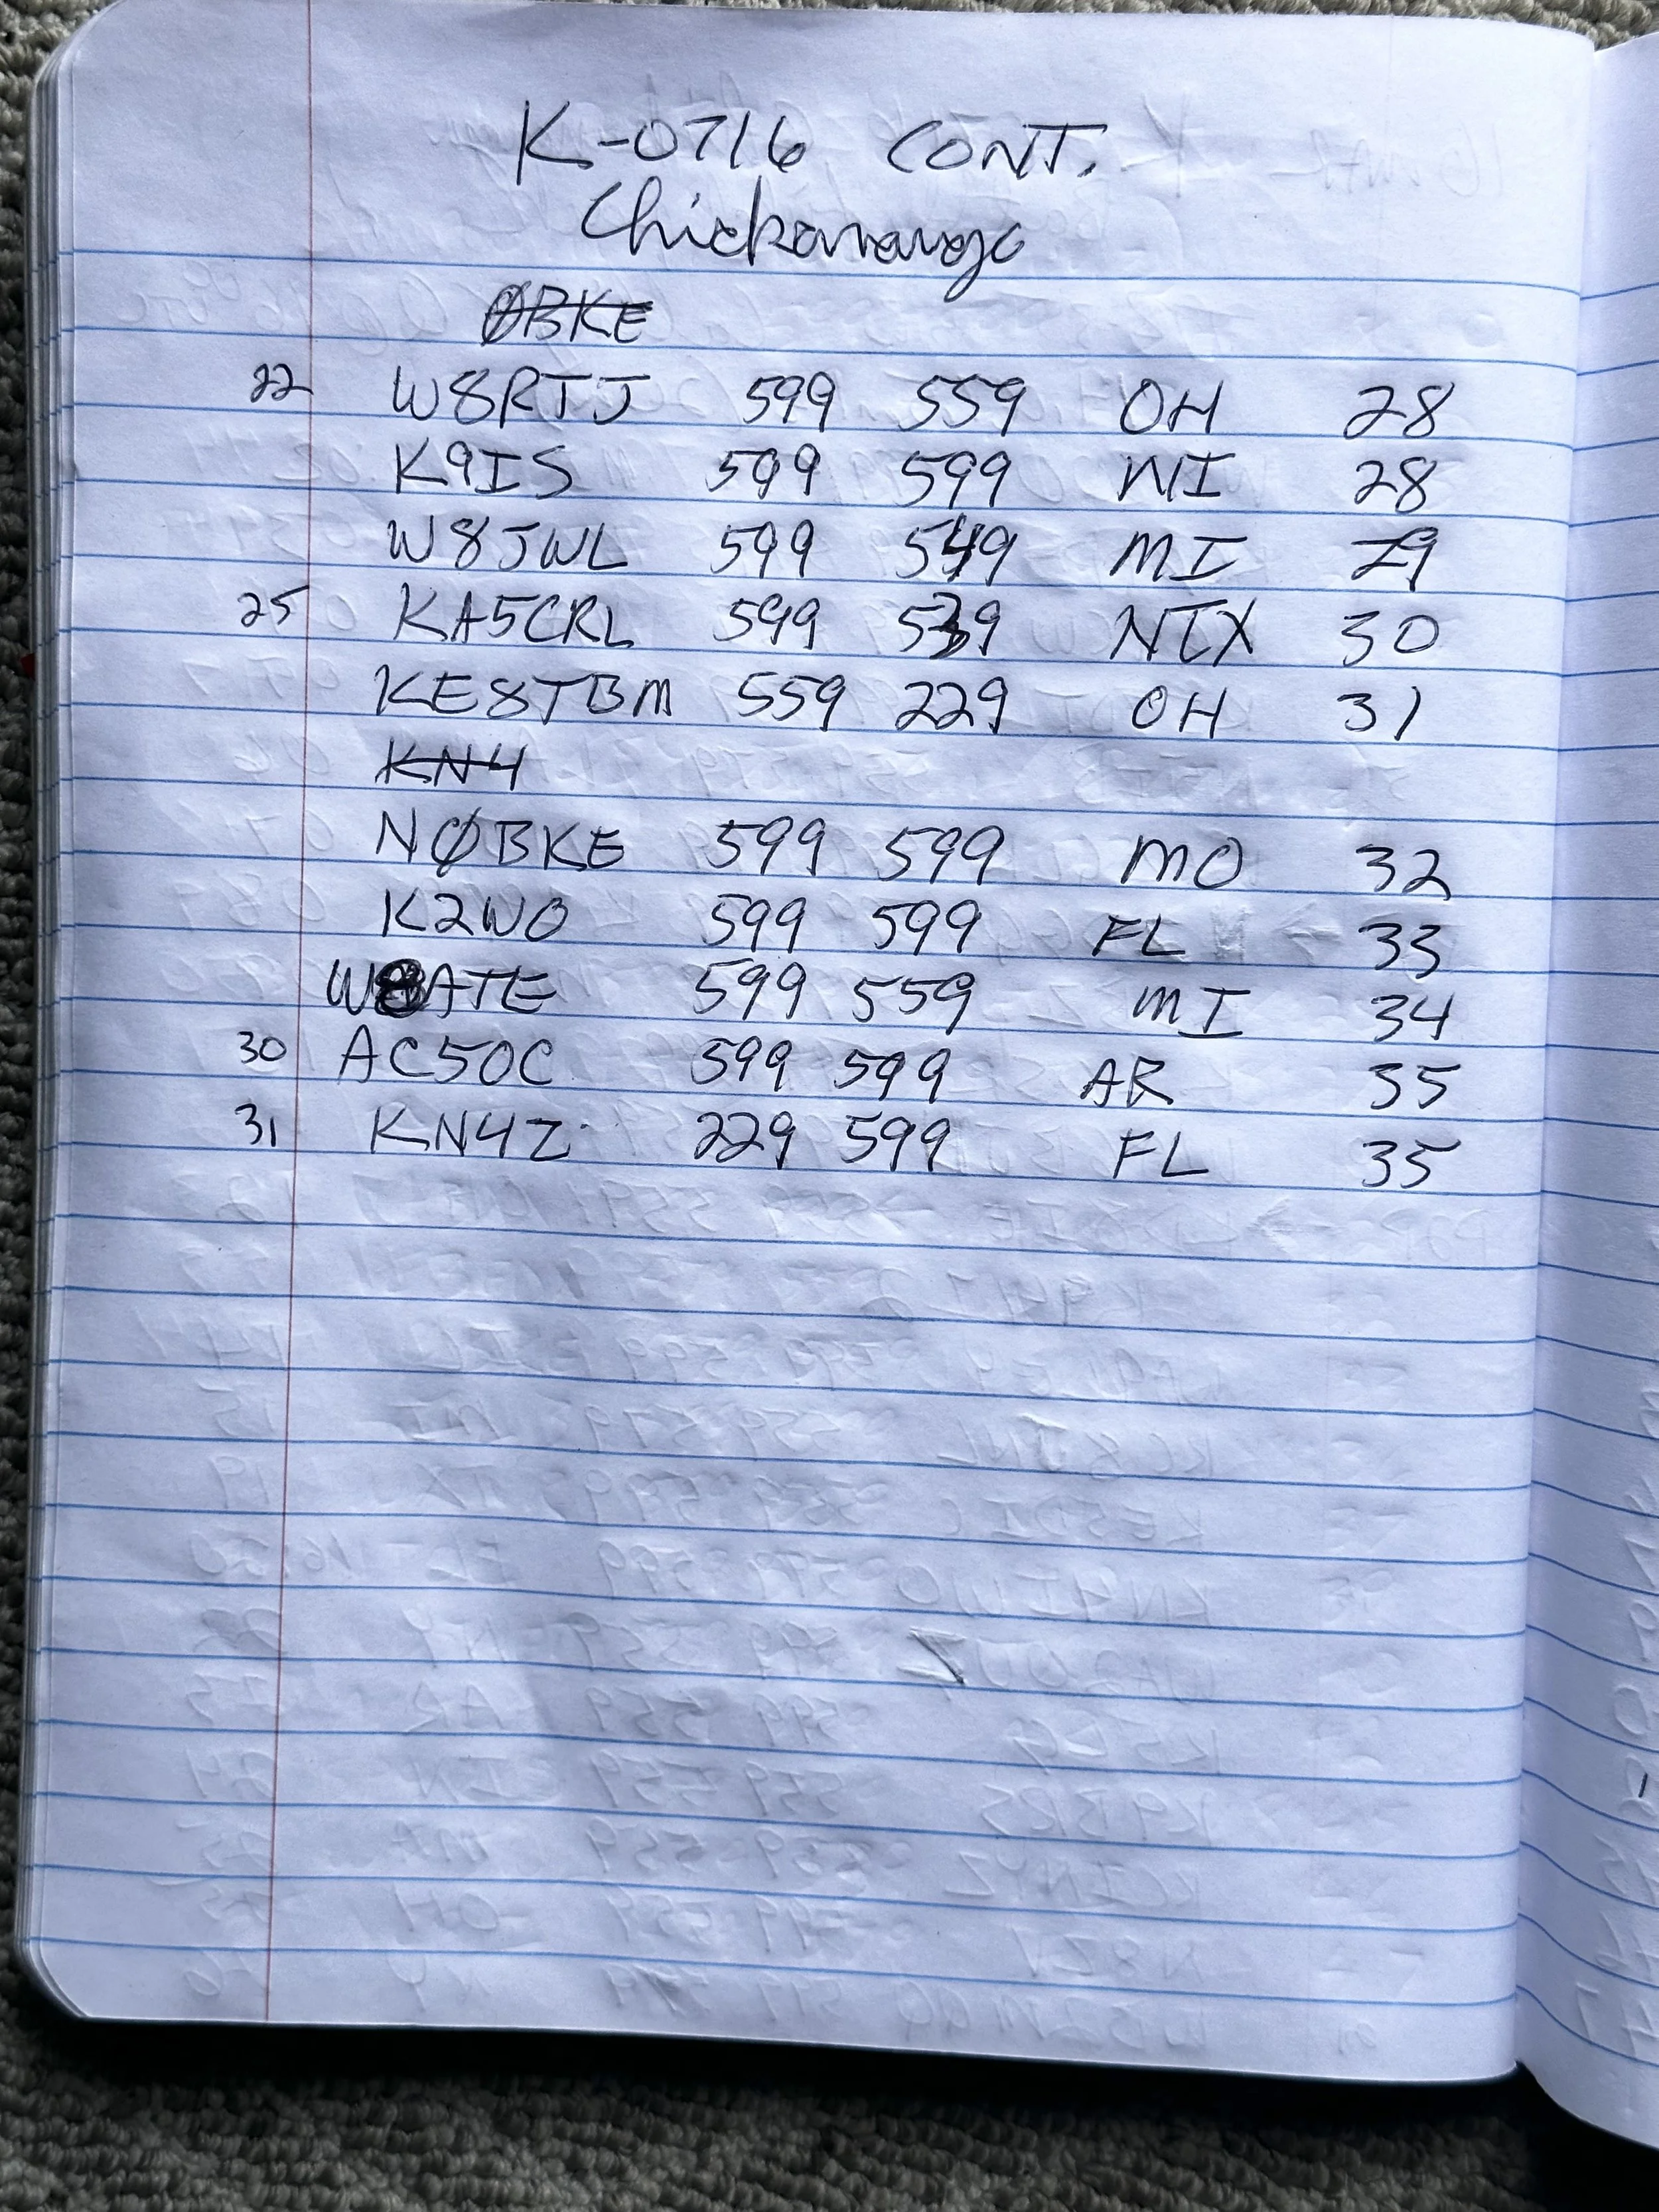 K-0716 CONT.
Chickamauga
ØBKE
22 W8RTJ 599 559 OH 28
K9IS 599 599 WI 28
W8JWL 599 549 MI 29
25 KA5CRL 599 539 NTX 30
KE8TBM 559 229 OH 31
KN4
NØBKE 599 599 MO 32
K2WO 599 599 FL 33
W8ATE 599 559 MI 34
30 AC5OC 599 599 AR 35
31 KN4Z 229 599 FL 35